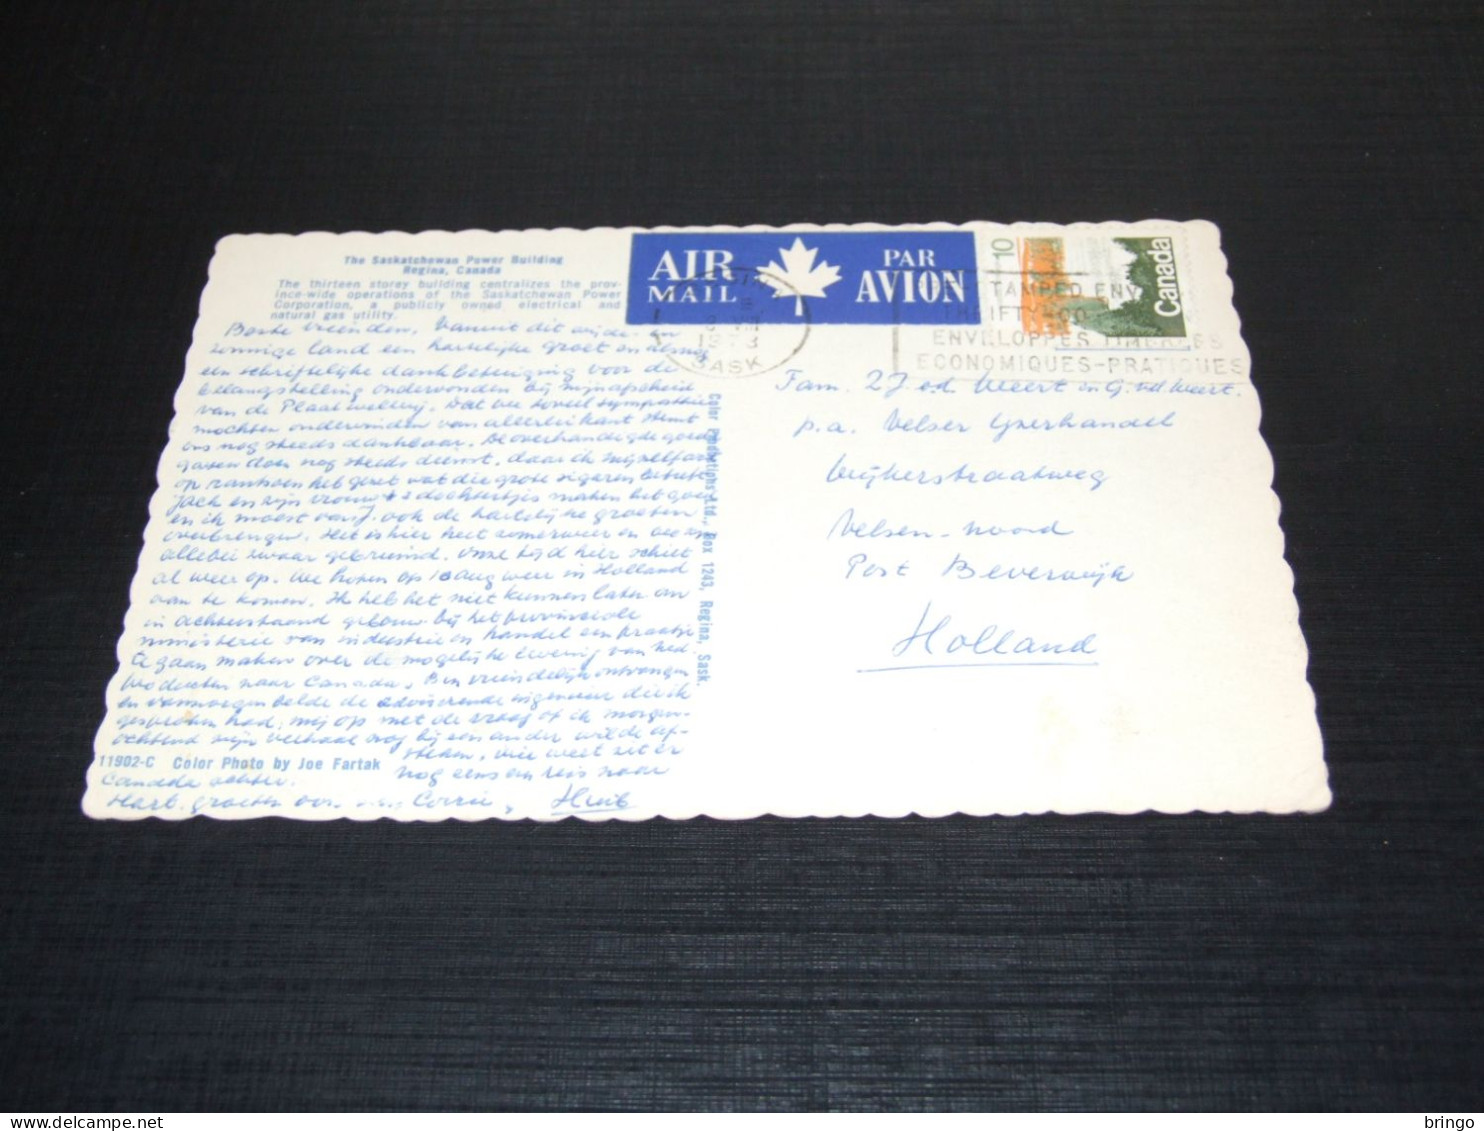 The Saskatchewan Power Building
Regina, Canada
The thirteen storey building centralizes the prov-
ince-wide operations of the Saskatchewan Power
Corporation, a publicly owned electrical and
natural gas utility.
Beste vrienden, Vanuit dit wijde en
zonnige land een hartelijke groet en alsnog
een schriftelijke dankbetuiging voor de
belangstelling ondervonden bij mijn afscheid
van de Plaatwellerij. Dat we zoveel sympathie
mochten ondervinden van allerlei kant stemt
ons nog steeds dankbaar. De overhandigde goede
gaven doen nog steeds dienst, daar ik mijzelf
op rantsoen heb gezet wat die grote sigaren betreft
Jack en zijn vrouw + 2 dochtertjes maken het goed
en ik moest van J. ook de hartelijke groeten
overbrengen. Het is hier heet zomerweer en we zijn
allebei zwaar gebruind. Onze tijd hier schiet
al weer op. We hopen op 10 aug weer in Holland
aan te komen. Ik heb het niet kunnen laten om
in achterstaand gebouw bij het provinciale
ministerie van industrie en handel een praatje
te gaan maken over de mogelijke levering van ned.
producten naar Canada. Ben vriendelijk ontvangen
en vanmorgen belde de adviserende ingenieur die ik
gesproken had, mij op met de vraag of ik morgen-
ochtend mijn verhaal nog bij een ander wilde af-
steken. Wie weet zit er
nog eens een reis naar
Canada achter.
Hart. groeten ook van Corrie, Huib
11902-C Color Photo by Joe Fartak
Color Productions Ltd., Box 1243, Regina, Sask.
AIR
MAIL
PAR
AVION
1973
SASK
STAMPED ENV
THRIFTY
ENVELOPPES TIMBREES
ECONOMIQUES-PRATIQUES
10
Canada
Fam. v.d. Weert en G. vd. Weert.
p.a. Velser IJzerhandel
Wijkerstraatweg
Velsen-Noord
Post Beverwijk
Holland
bringo